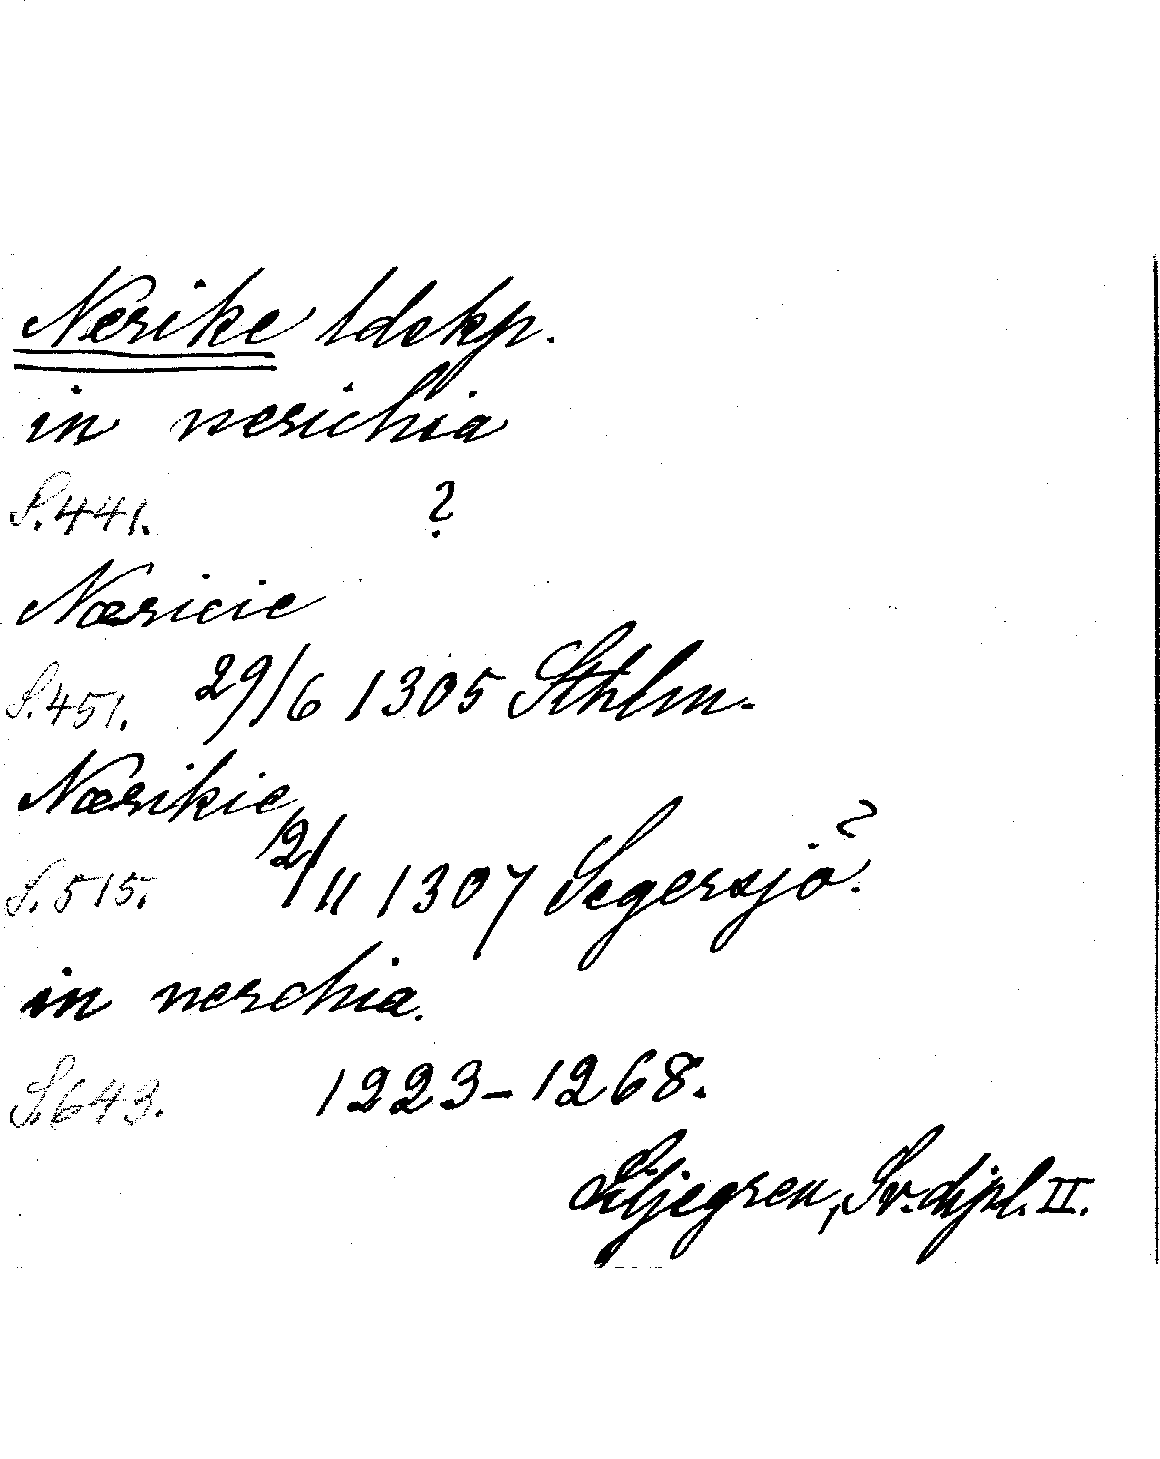 Nerike ldskp.
in nerichia
S. 441. ?
Næricie
S. 451. 29/6 1305 Sthlm.
Nærikie
S. 515. 12/11 1307 Segersjö?
in nerchia.
S. 643. 1223-1268.
Liljegren, Sv. dipl. II.